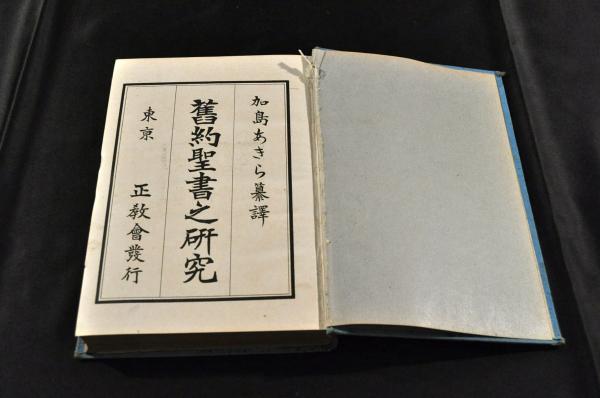 加島あきら纂譯
舊約聖書之硏究
東京 正敎會發行